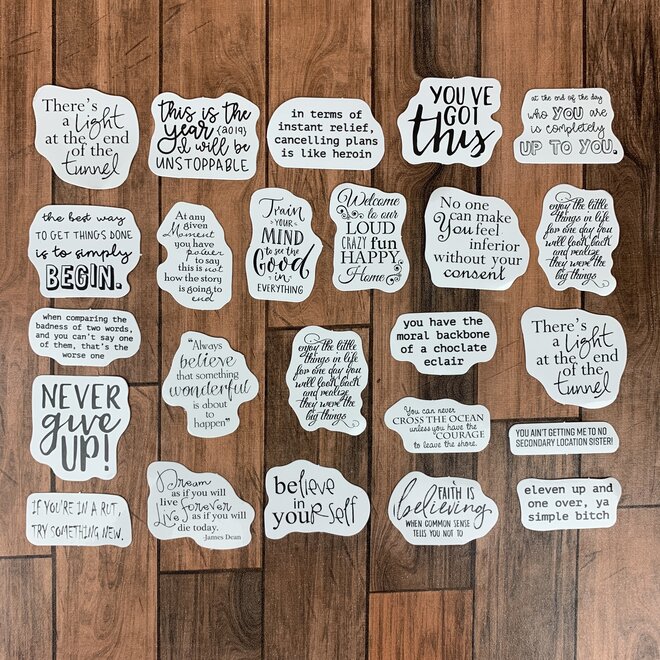 There's
a Light
at the end
of the
tunnel
this is the
year {2019}
I will be
UNSTOPPABLE
in terms of
instant relief,
cancelling plans
is like heroin
YOU'VE
GOT
this
at the end of the day
who YOU are
is completely
UP TO YOU.
the best way
TO GET THINGS DONE
is to simply
BEGIN.
At any
given
Moment
you have
power
to say
this is not
how the story
is going to
end
Train
YOUR
MIND
to see the
Good
in
EVERYTHING
Welcome
to our
LOUD
CRAZY fun
HAPPY
Home
No one
can make
You feel
inferior
without your
consent
enjoy the little
things in life
for one day you
will look back
and realize
they were the
big things
when comparing the
badness of two words,
and you can't say one
of them, that's the
worse one
"Always
believe
that something
wonderful
is about
to happen"
enjoy the little
things in life
for one day you
will look back
and realize
they were the
big things
you have the
moral backbone
of a choclate
eclair
There's
a Light
at the end
of the
tunnel
NEVER
give
UP!
You can never
CROSS THE OCEAN
unless you have the
COURAGE
to leave the shore.
YOU AIN'T GETTING ME TO NO
SECONDARY LOCATION SISTER!
IF YOU'RE IN A RUT,
TRY SOMETHING NEW.
Dream
as if you will
live forever
Live as if you will
die today.
-James Dean
believe in
yourself
FAITH IS
believing
WHEN COMMON SENSE
TELLS YOU NOT TO
eleven up and
one over, ya
simple bitch